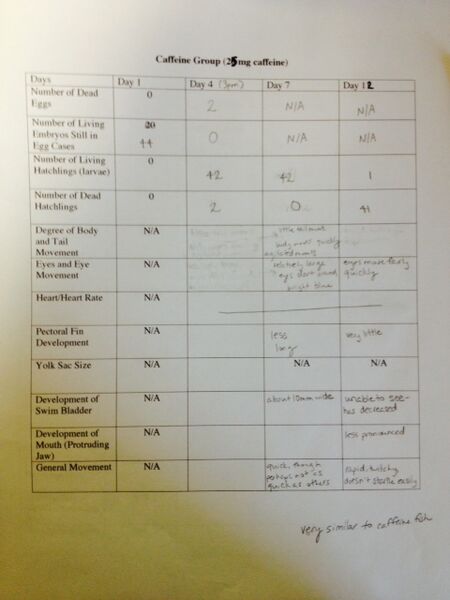 Caffeine Group (25mg caffeine)
Days Day 1 Day 4 (3pm) Day 7 Day 12
Number of Dead 0
Eggs 2 N/A N/A
Number of Living 20
Embryos Still in 44 0 N/A N/A
Egg Cases
Number of Living 0
Hatchlings (larvae) 42 42 1
Number of Dead 0
Hatchlings 2 0 41
Degree of Body N/A little tail
and Tail body moves quickly
Movement
Eyes and Eye N/A large eyes move fairly
Movement eyes don't quickly
bright blue
Heart/Heart Rate N/A
Pectoral Fin N/A less very little
Development long
Yolk Sac Size N/A N/A N/A
Development of N/A about 10mm wide unable to see-
Swim Bladder has decreased
Development of N/A less pronounced
Mouth (Protruding
Jaw)
General Movement N/A quick, though rapid, twitchy
perhaps not as doesn't startle easily
quick as others
very similar to caffeine fish